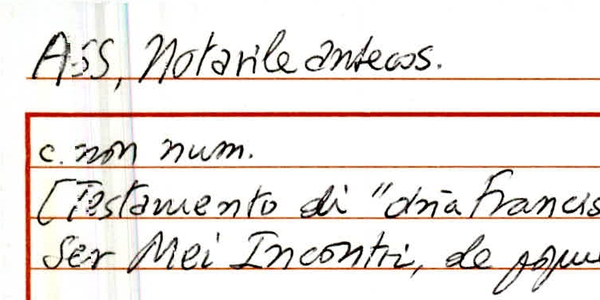 ASS, Notarile antecos.
c. non num.
[Testamento di "dña Francis
Ser Mei Incontri, de popu